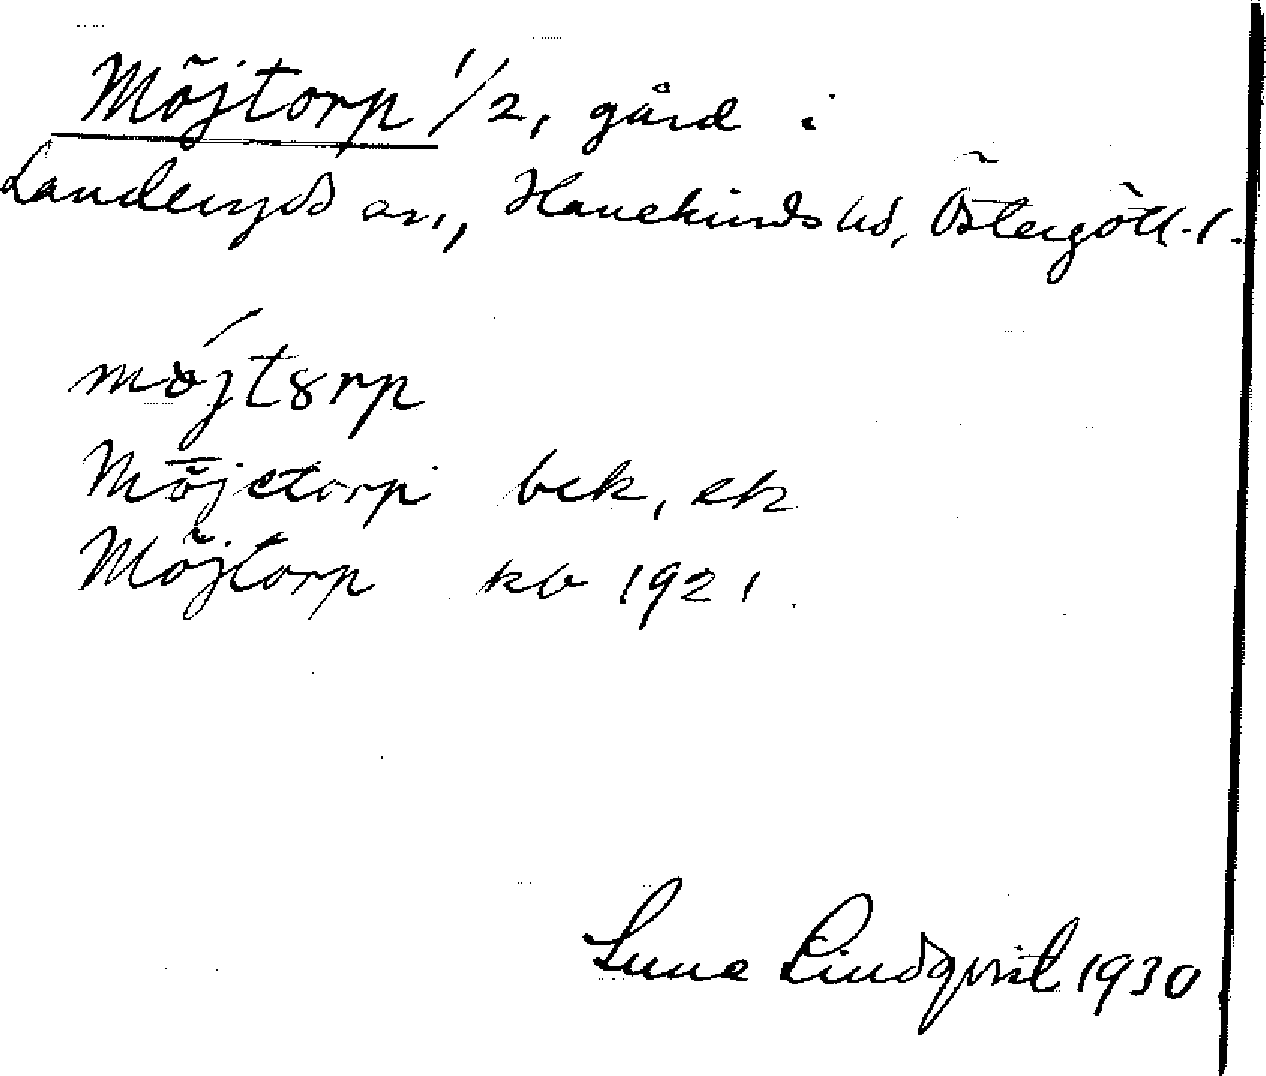 Möjtorp 1/2, gård i
Landeryds sn., Hanekinds hd, Östergötl. l.
möjtorp
Möjetorp bek, ek
Möjtorp kb 1921.
Sune Lindqvist 1930